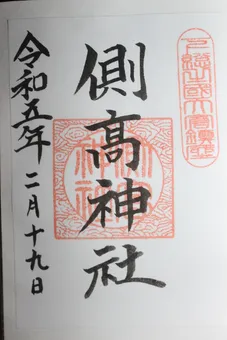 側高神社
令和五年二月十九日